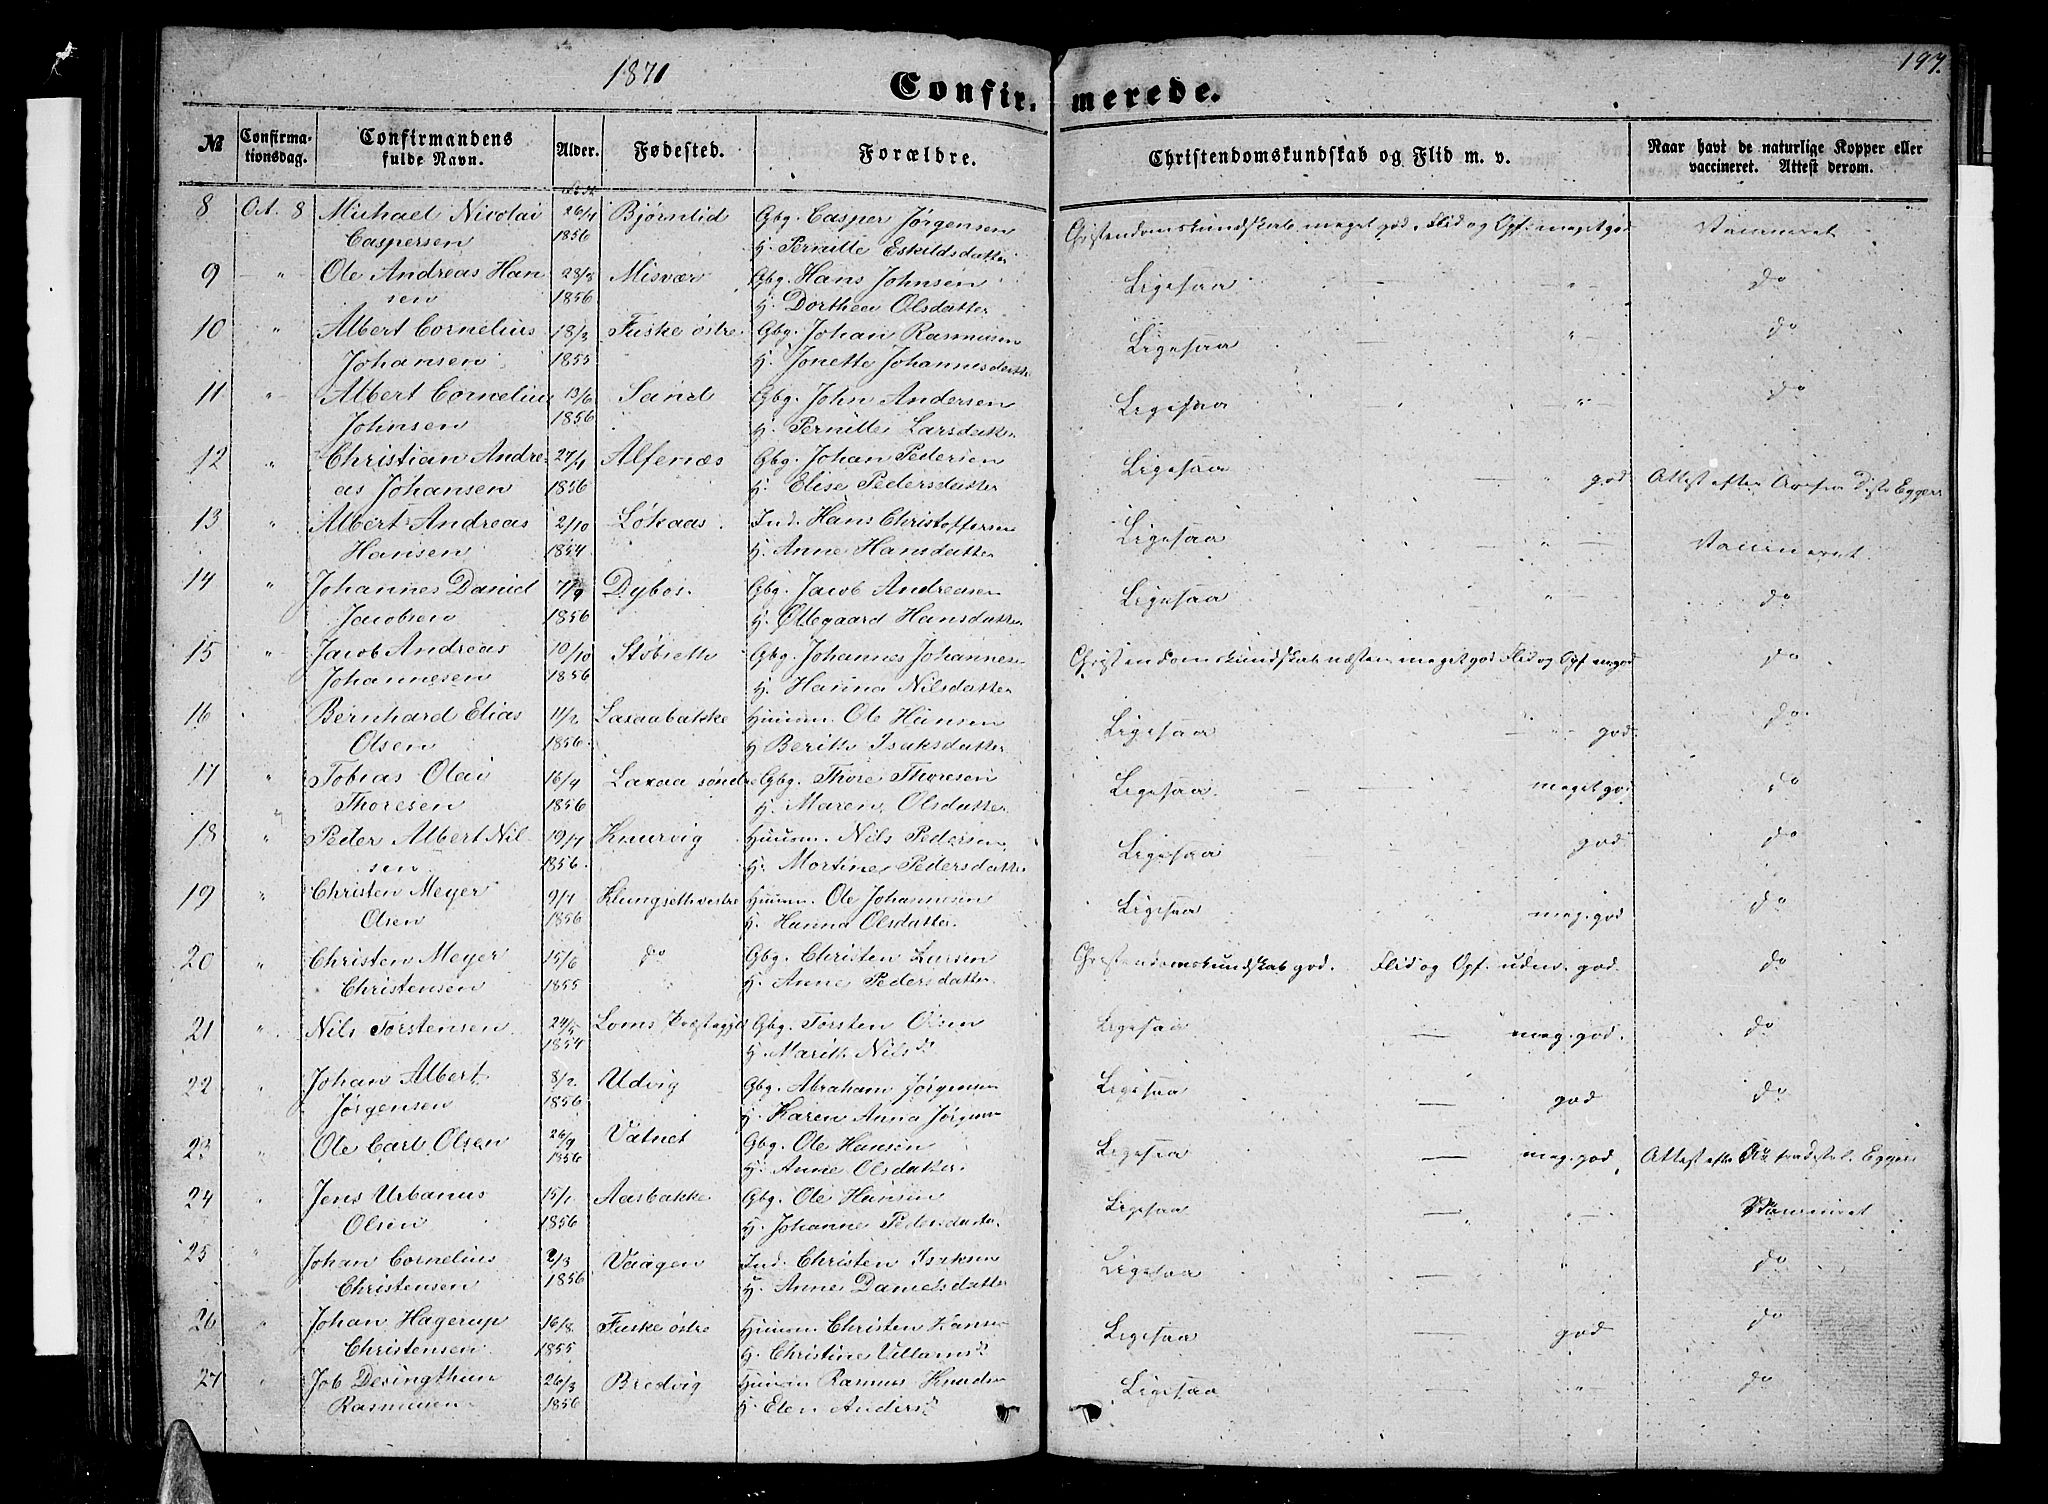 1871
197.
Confir- merede.
№ Confirma-tionsdag. Confirmandens fulde Navn. Alder. Fødested. Forældre. Christendomskundskab og Flid m. v. Naar havt de naturlige Kopper eller vaccineret. Attest derom.
8 Oct. 8 Michael Nicolai 26/4 Bjørnlid Gbg. Casper Jørgensen Christendomskundskab meget god. Flid og Opf: meget god Vaccineret
Caspersen 1856 H. Pernille Eskildsdatter
9 — " Ole Andreas Han 28/8 Misvær Gbg. Hans Johnsen Ligesaa — " — do
sen 1856 H. Dorthea Olsdatter
10 " Albert Cornelius 18/3 Fuske østre Gbg. Johan Rasmussen Ligesaa " do
Johansen 1855 H. Jonette Johannesdatter
11 " Albert Cornelius 13/6 Sand Gbg. John Andersen Ligesaa " — do
Johnsen 1856 H. Pernille Larsdatter
12 " Christian Andre- 27/4 Alfenæs Gbg. Johan Pedersen Ligesaa — " god Attest efter Eggers
as Johansen 1856 H. Elise Pedersdatter
13 " Albert Andreas 2/10 Løkaas. Ind. Hans Christoffersen Ligesaa — " — Vaccineret
Hansen 1854 H. Anne Hansdatter
14 " Johannes Daniel 7/9 Dybos. Gbg. Jacob Andreasen Ligesaa " — do
Jacobsen 1856 H. Øllegaard Hansdatter
15 " Jacob Andreas 10/10 Støbseth Gbg. Johannes Johannesen Christendomskundskab næsten meget god Flid og Opf mgod do
Johannesen 1856 H. Hanna Nilsdatter
16 Bernhard Elias 11/2 Laxaabakke Huusm. Ole Hansen Ligesaa — " god. do
Olsen 1856. H Berith Isaksdatter
17 " Tobias Olai 16/4 Laxaa søndre Gbg. Thore Thoresen Ligesaa. — meget god do
Thoresen 1856 H. Maren Olsdatter
18 " Peder Albert Nil- 19/4 Knurvig Huusm. Nils Pedersen Ligesaa god do
sen 1856. H. Mortine Pedersdatter
19 " Christen Meyer 9/4 Klungseth vestre Huusm. Ole Johannesen Ligesaa " meg. god do
Olsen 1856 H. Hanna Olsdatter.
20 " Christen Meyer 15/6 do Gbg. Christen Larsen Christendomskundskab god. Flid og Opf. uden. god. do
Christensen 1855 H. Anne Pedersdatter
21 " Nils Torstensen 24/5 Loms Præstegjeld Gbg. Torsten Olsen Ligesaa — meg. god. do
1854 H. Marith Nils dr
22 " Johan Albert 8/2 Udvig Gbg. Abraham Jørgensen Ligesaa — god do
Jørgensen 1856 H. Karen Anna Jørgens
23 " Ole Carl Olsen 26/9 Vatnet Gbg. Ole Hansen Ligesaa — meg. god Attest efter Eggers
1856 H. Anne Olsdatter.
24 " Jens Urbanus 15/1 Aasbakke Gbg. Ole Hansen Ligesaa — " " — Vaccineret
Olsen 1856 H. Johanne Pedersdatter
25 " Johan Cornelius 2/3 Vaagen Ind. Christen Isaksen Ligesaa — " do
Christensen 1856 H. Anne Danielsdatter
26 " Johan Hagerup 16/8. Fuske østre Huusm. Christen Hansen Ligesaa — god do
Christensen 1855 H. Christine Villums dr
27 " Job Desingthun 26/3 Bredvig Huusm Rasmus Knudsen Ligesaa — " — do
Rasmussen 1856 H. Elen Anders dr